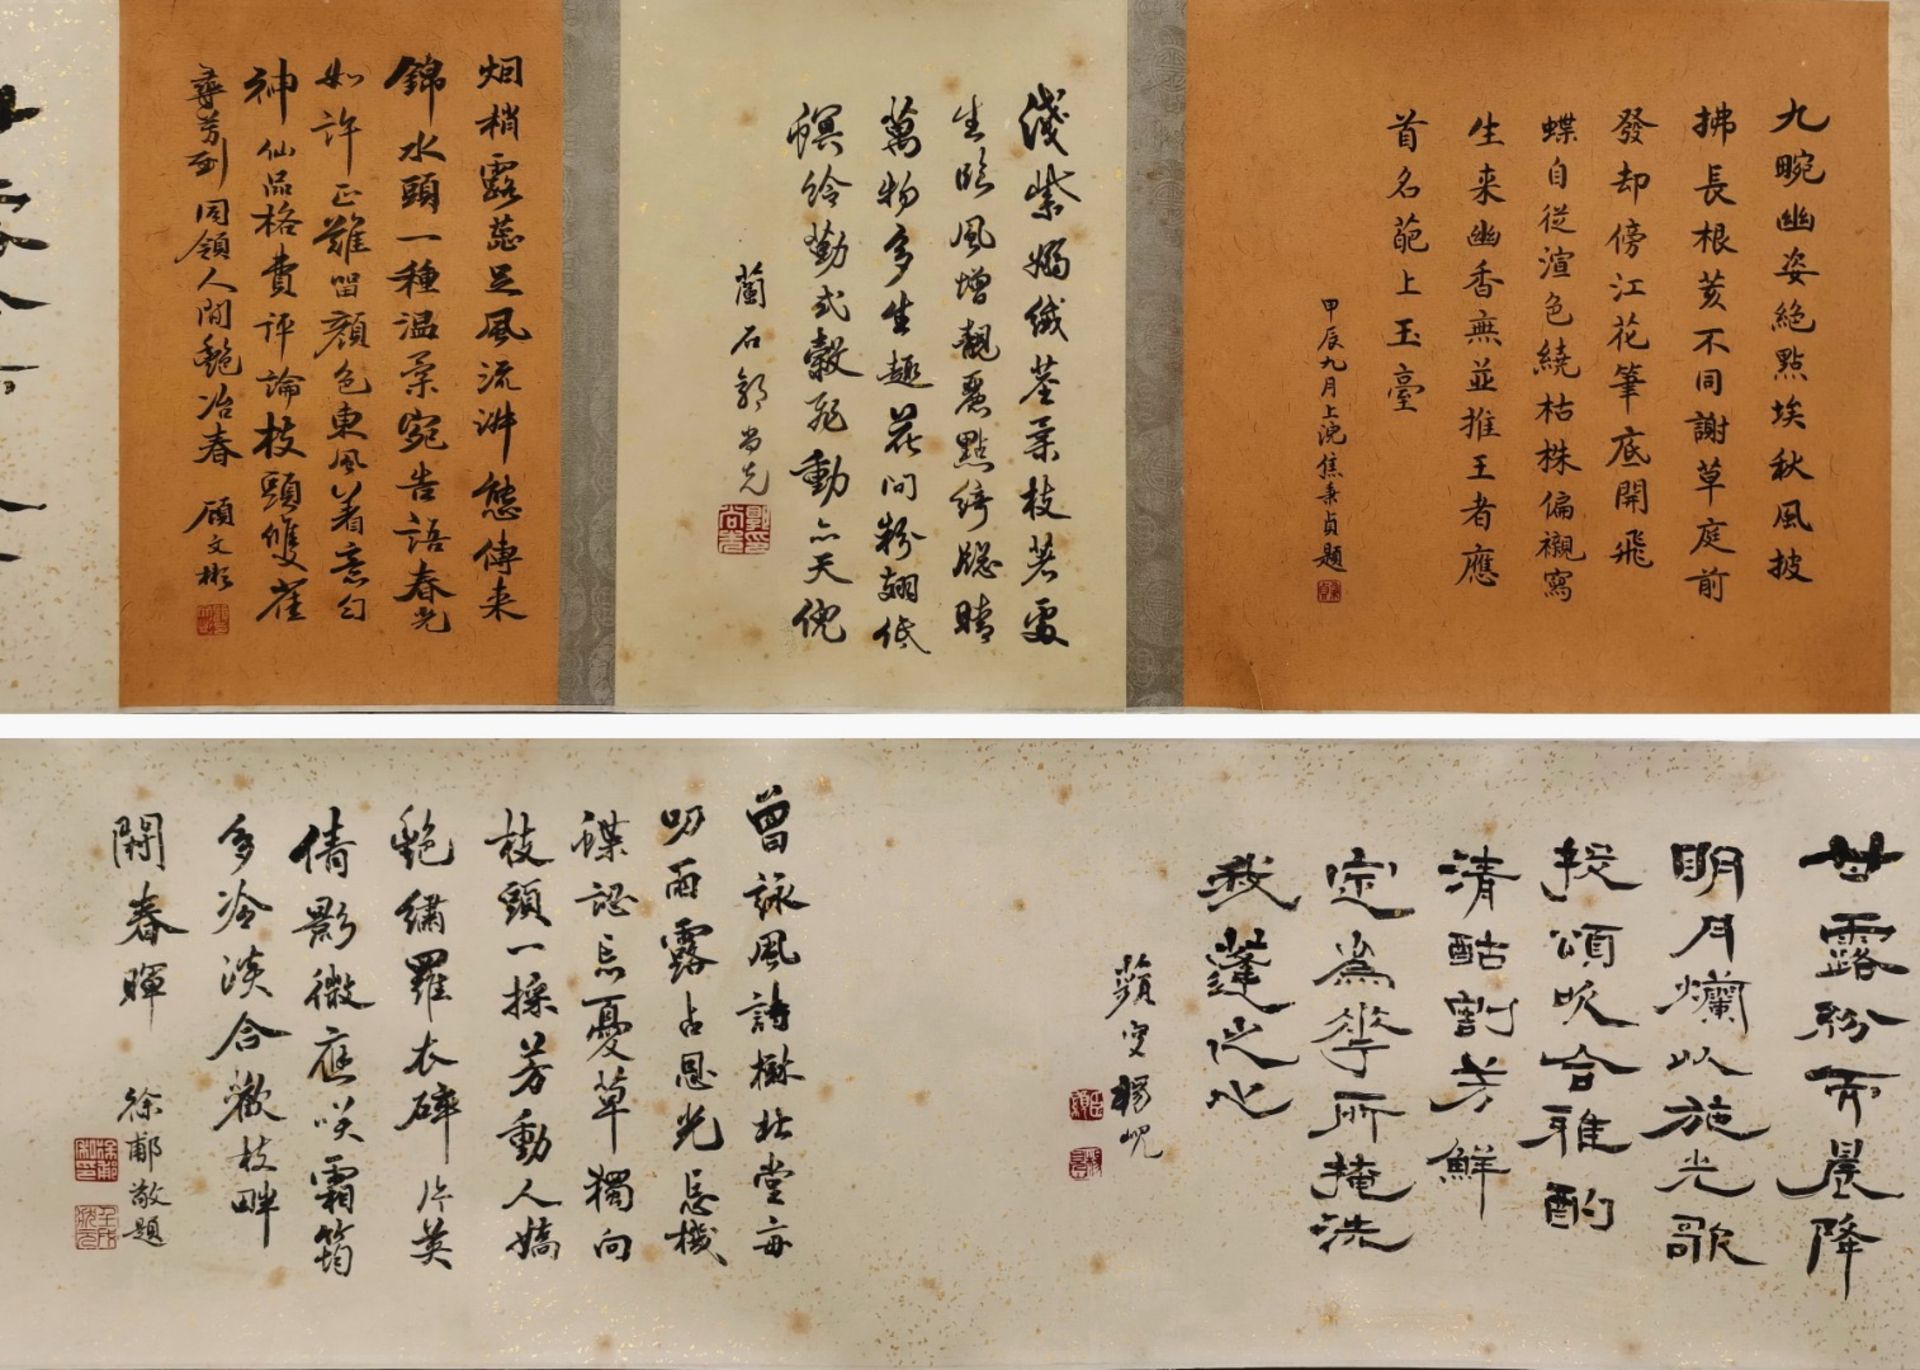 九畹幽姿絶點埃秋風披
拂長根荄不同謝草庭前
發却傍江花筆底開飛
蝶自從渲色繞枯株偏襯寫
生来幽香無並推王者應
首名葩上玉臺
甲辰九月上浣焦秉貞題
淺紫嫣絨莖柔枝若
生臨風增靚麗點綺晴
萬物多生趣花间粉翅低
螟蛉勤式穀飛動亦天倪
蘭石郭尚先
烟梢露蕊足風流淋態傳来
錦水頭一種温柔宛告語春光
如許正難留顔色東風着意勻
神仙品格費評論枝頭雙崔
尋芳到同領人間艷冶春
顧文彬
甘露紛而晨降
明月爛以施光歌
投頌吹合雅酌
清酤割芳鮮
定為華所掩洗
我蓬之心
藐叟楊峴
曾詠風詩樹北堂每
叨雨露占恩光忘機
蝶認忘憂草獨向
枝頭一探芳動人嬌
艷繡羅衣碎片英
倩影微應咲霜筠
多冷淡合歡枝畔
鬪春暉
徐郙敬題